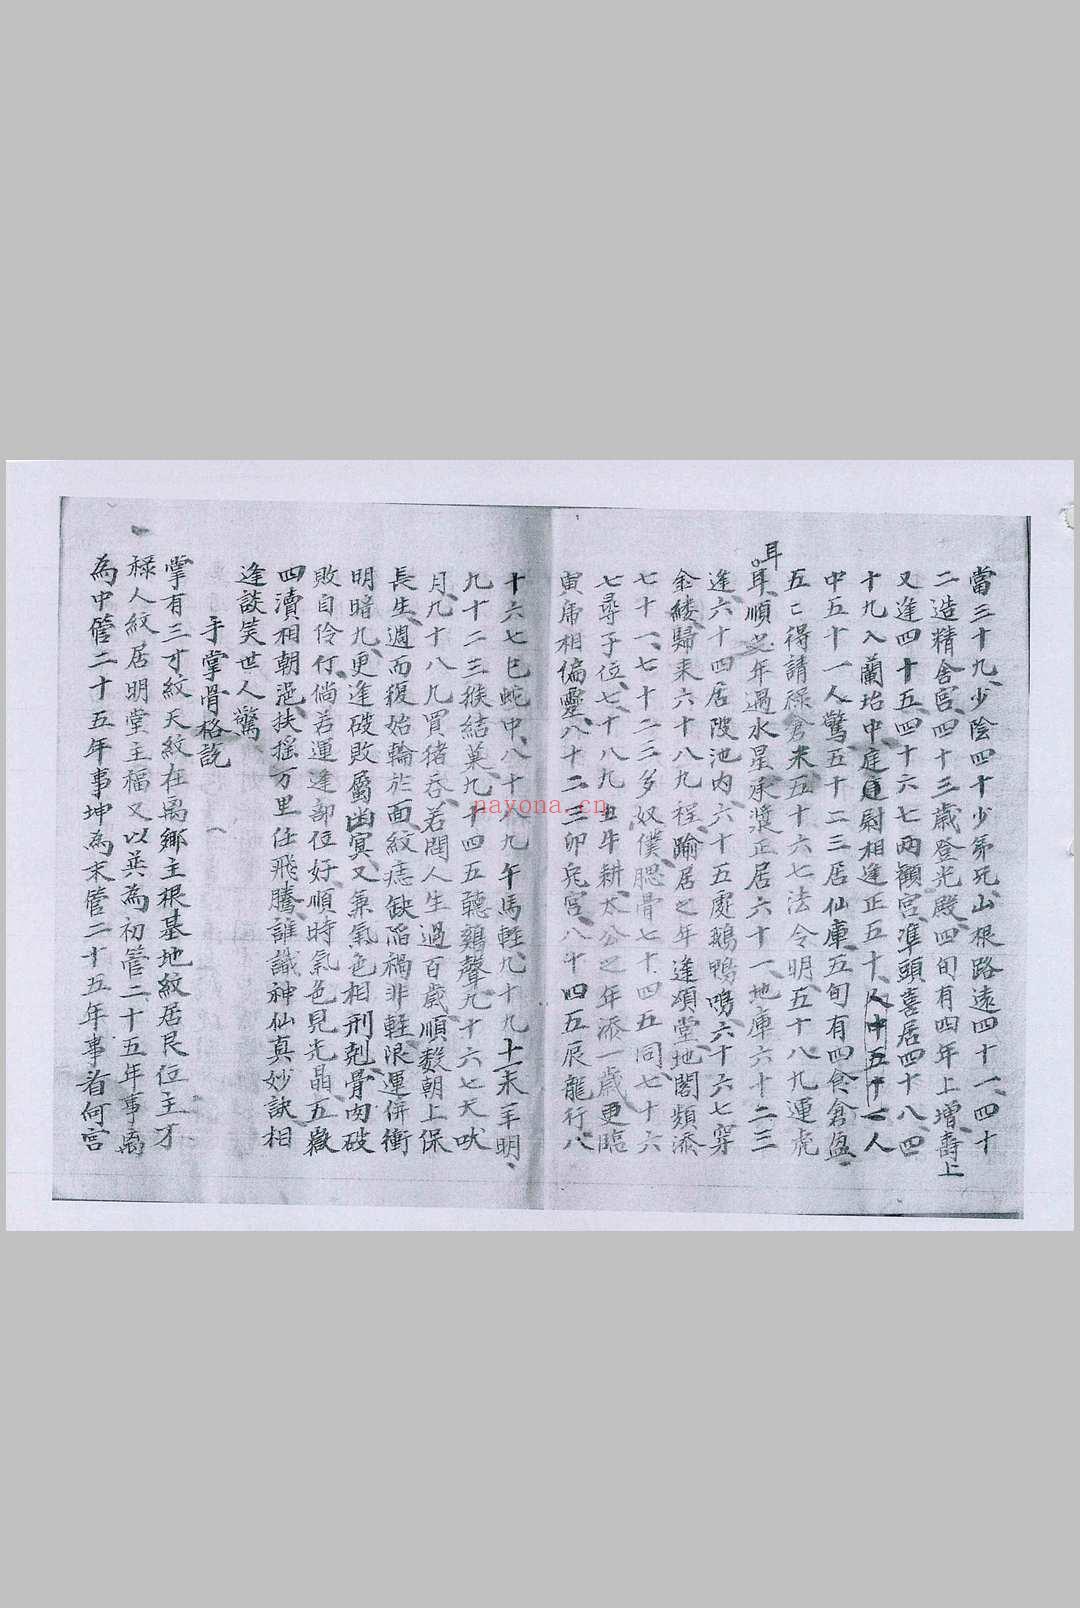 當三十九、少陰四十少弟兄、山根路遠四十一、四十
二造精舍宮、四十三歲登光殿、四旬有四年上增、壽上
又逢四十五、四十六七兩顴宮、準頭喜居四十八、四
十九入蘭坮中、庭尉相逢正五十、人中五十一人
中五十一人驚、五十二三居仙庫、五旬有四食倉盈、
五、得請祿倉米、五十六七法令明、五十八九運虎
耳
耳、順之年過水星、承漿正居六十一、地庫六十二三
逢、六十四居陂池內、六十五處鵝鴨鳴、六十六七穿
金縷、歸來六十八九程、踰居之年逢頌堂、地閣頻添
七十一、七十二三多奴僕、腮骨七十四五同、七十六
七尋子位、七十八九丑牛耕、太公之年添一歲、更臨
寅席相偏靈、八十二三卯兔宮、八十四五辰龍行、八
十六七巳蛇中、八十八九午馬輕、九十九十一未羊明、
九十二三猴結菓、九十四五聽鷄聲、九十六七犬吠
月、九十八九買猪吞、若問人生過百歲、順數朝上保
長生、週而復始輪於面、紋痣缺陷禍非輕、限運併衝
明暗九、更逢破敗屬幽冥、又兼氣色相刑剋、骨肉破
敗自伶仃、倘若運逢部位好、順時氣色見光晶、五嶽
四瀆相朝浥、扶搖万里任飛騰、誰識神仙真妙訣、相
逢談笑世人驚、
手掌骨格説
掌有三才紋天紋在离鄉主根基地紋居艮位主才
祿人紋居明堂主福又以巽為初管二十五年事离
為中管二十五年事坤為末管二十五年事看何宮
nayona.cn